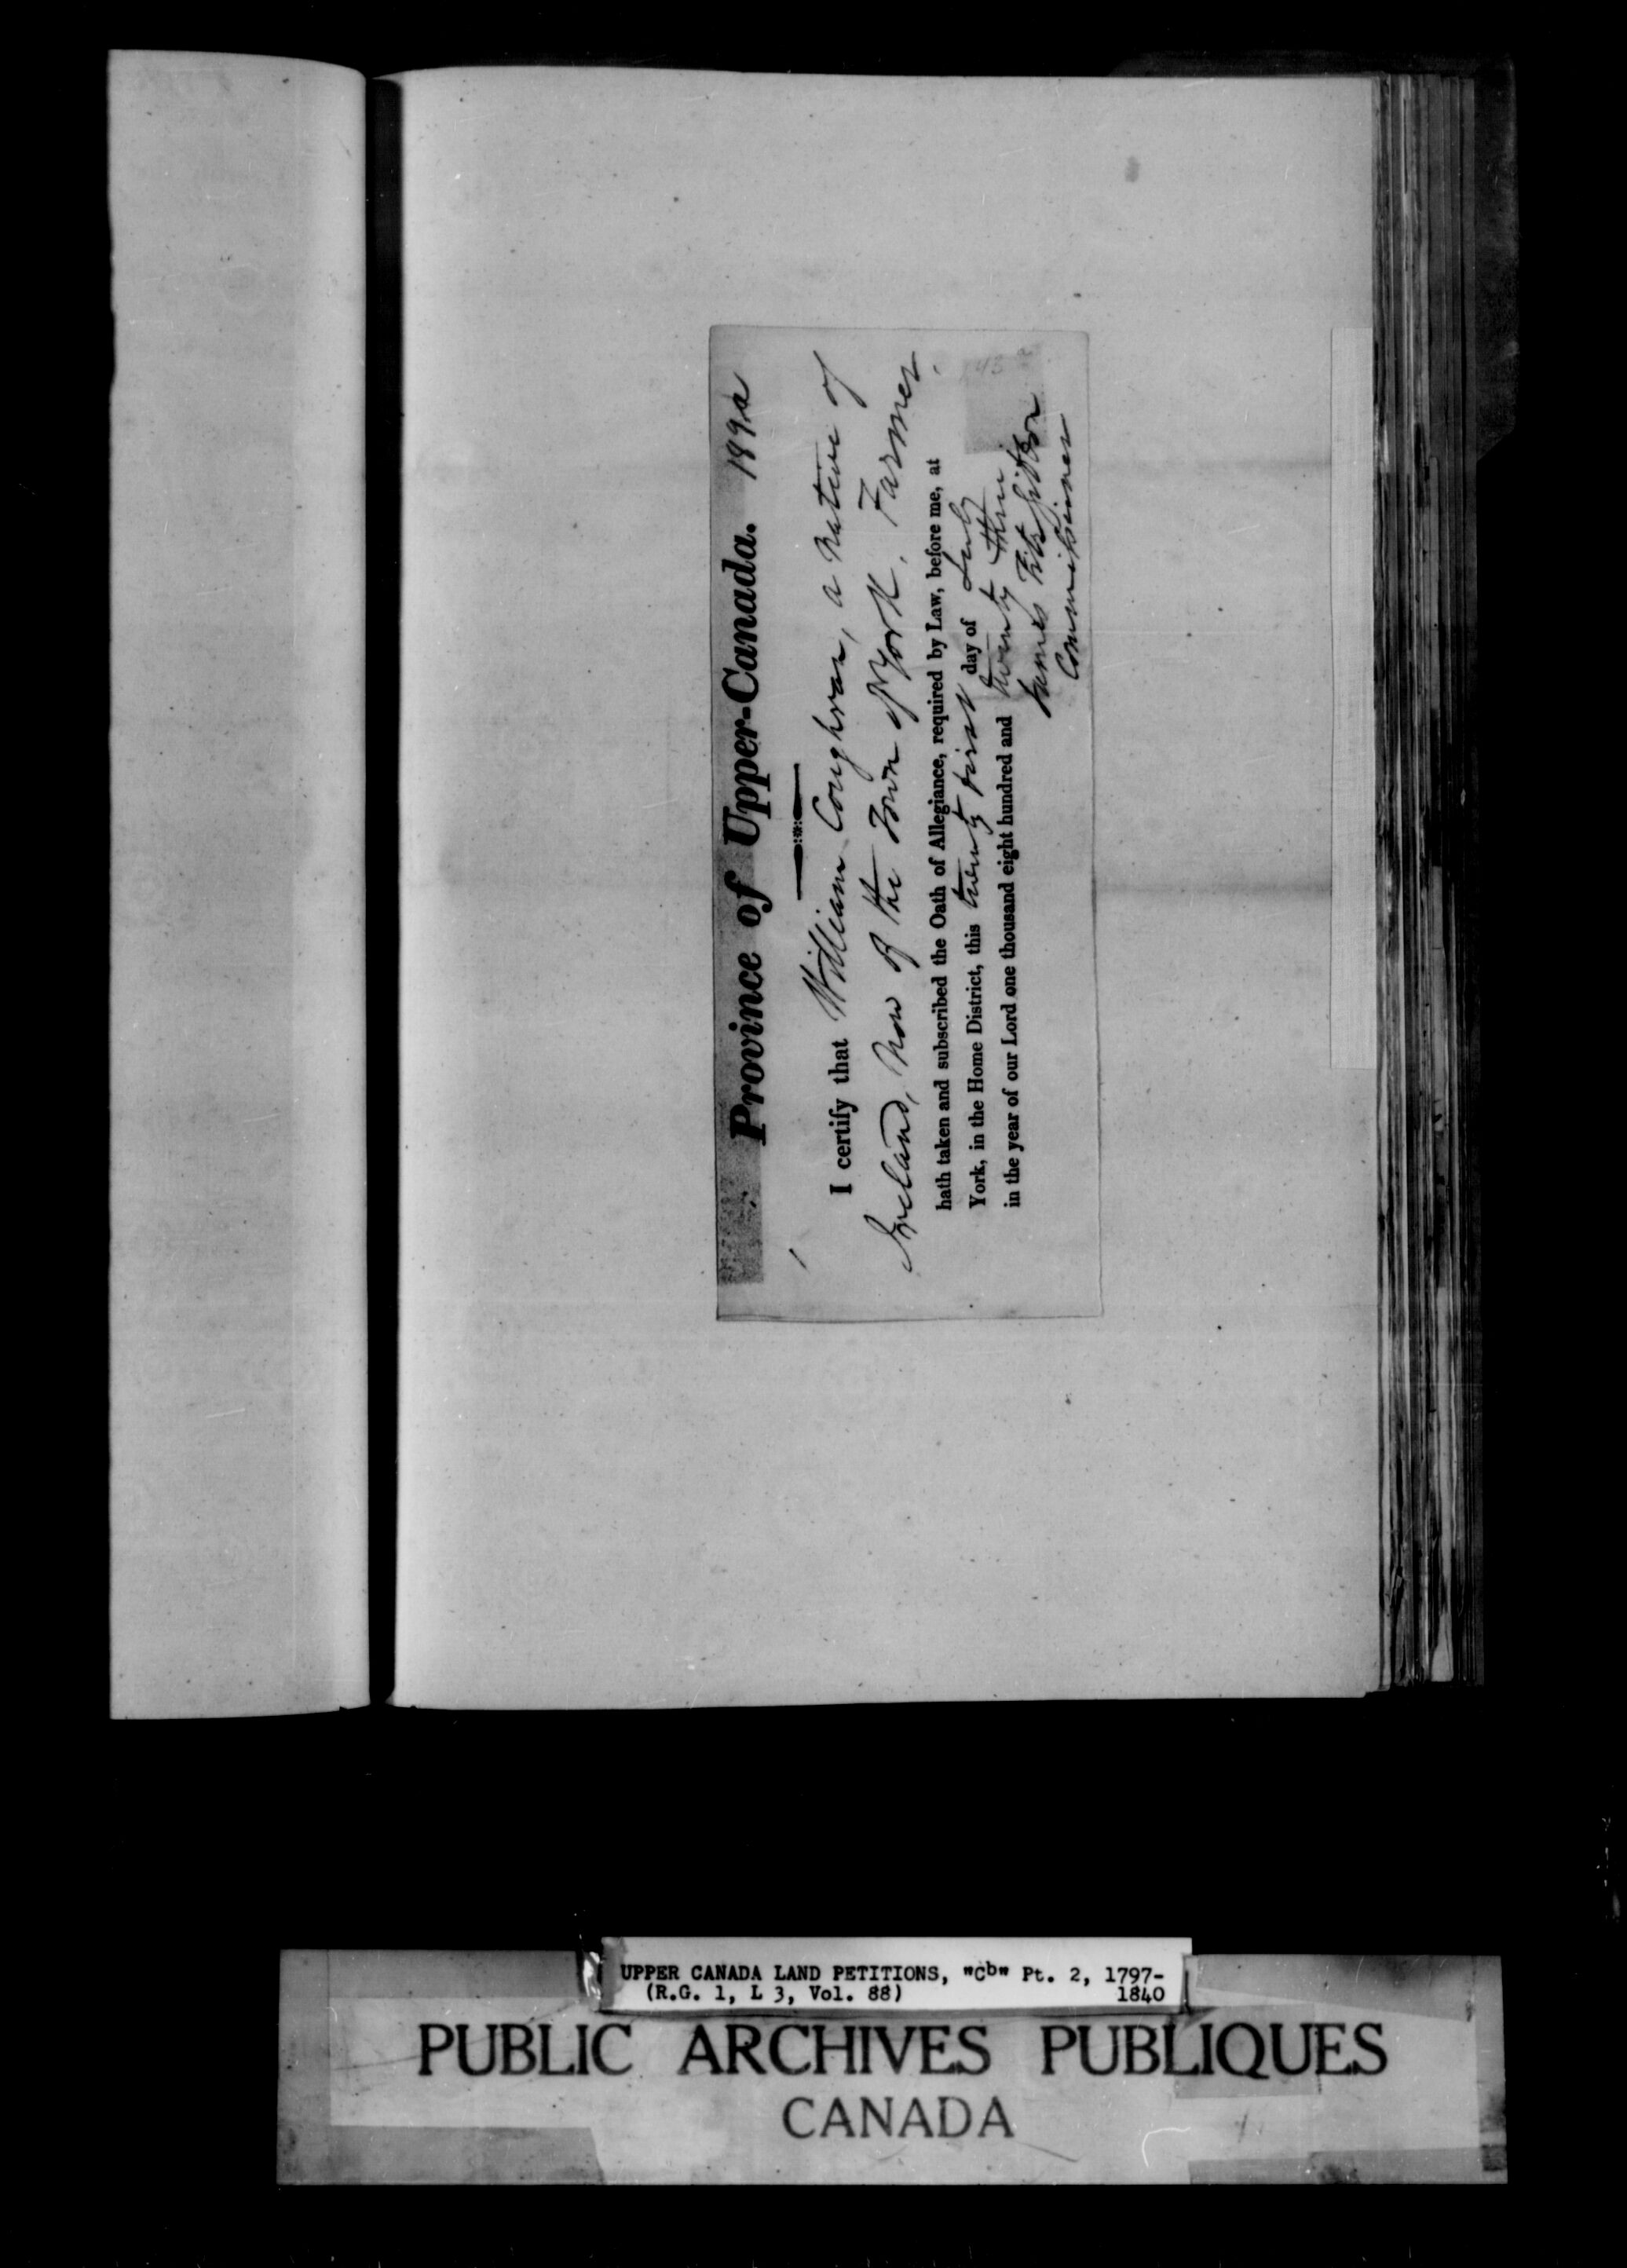 Province of Upper-Canada. 189a
I certify that William Coughran, a native of
Ireland, now of the Town of York. Farmer.
hath taken and subscribed the Oath of Allegiance, required by Law, before me, at
York, in the Home District, this twenty first day of July
in the year of our Lord one thousand eight hundred and twenty three
James FitzGibbon
Commissioner
UPPER CANADA LAND PETITIONS, "Cb" Pt. 2, 1797-
(R.G. 1, L 3, Vol. 88) 1840
PUBLIC ARCHIVES PUBLIQUES
CANADA